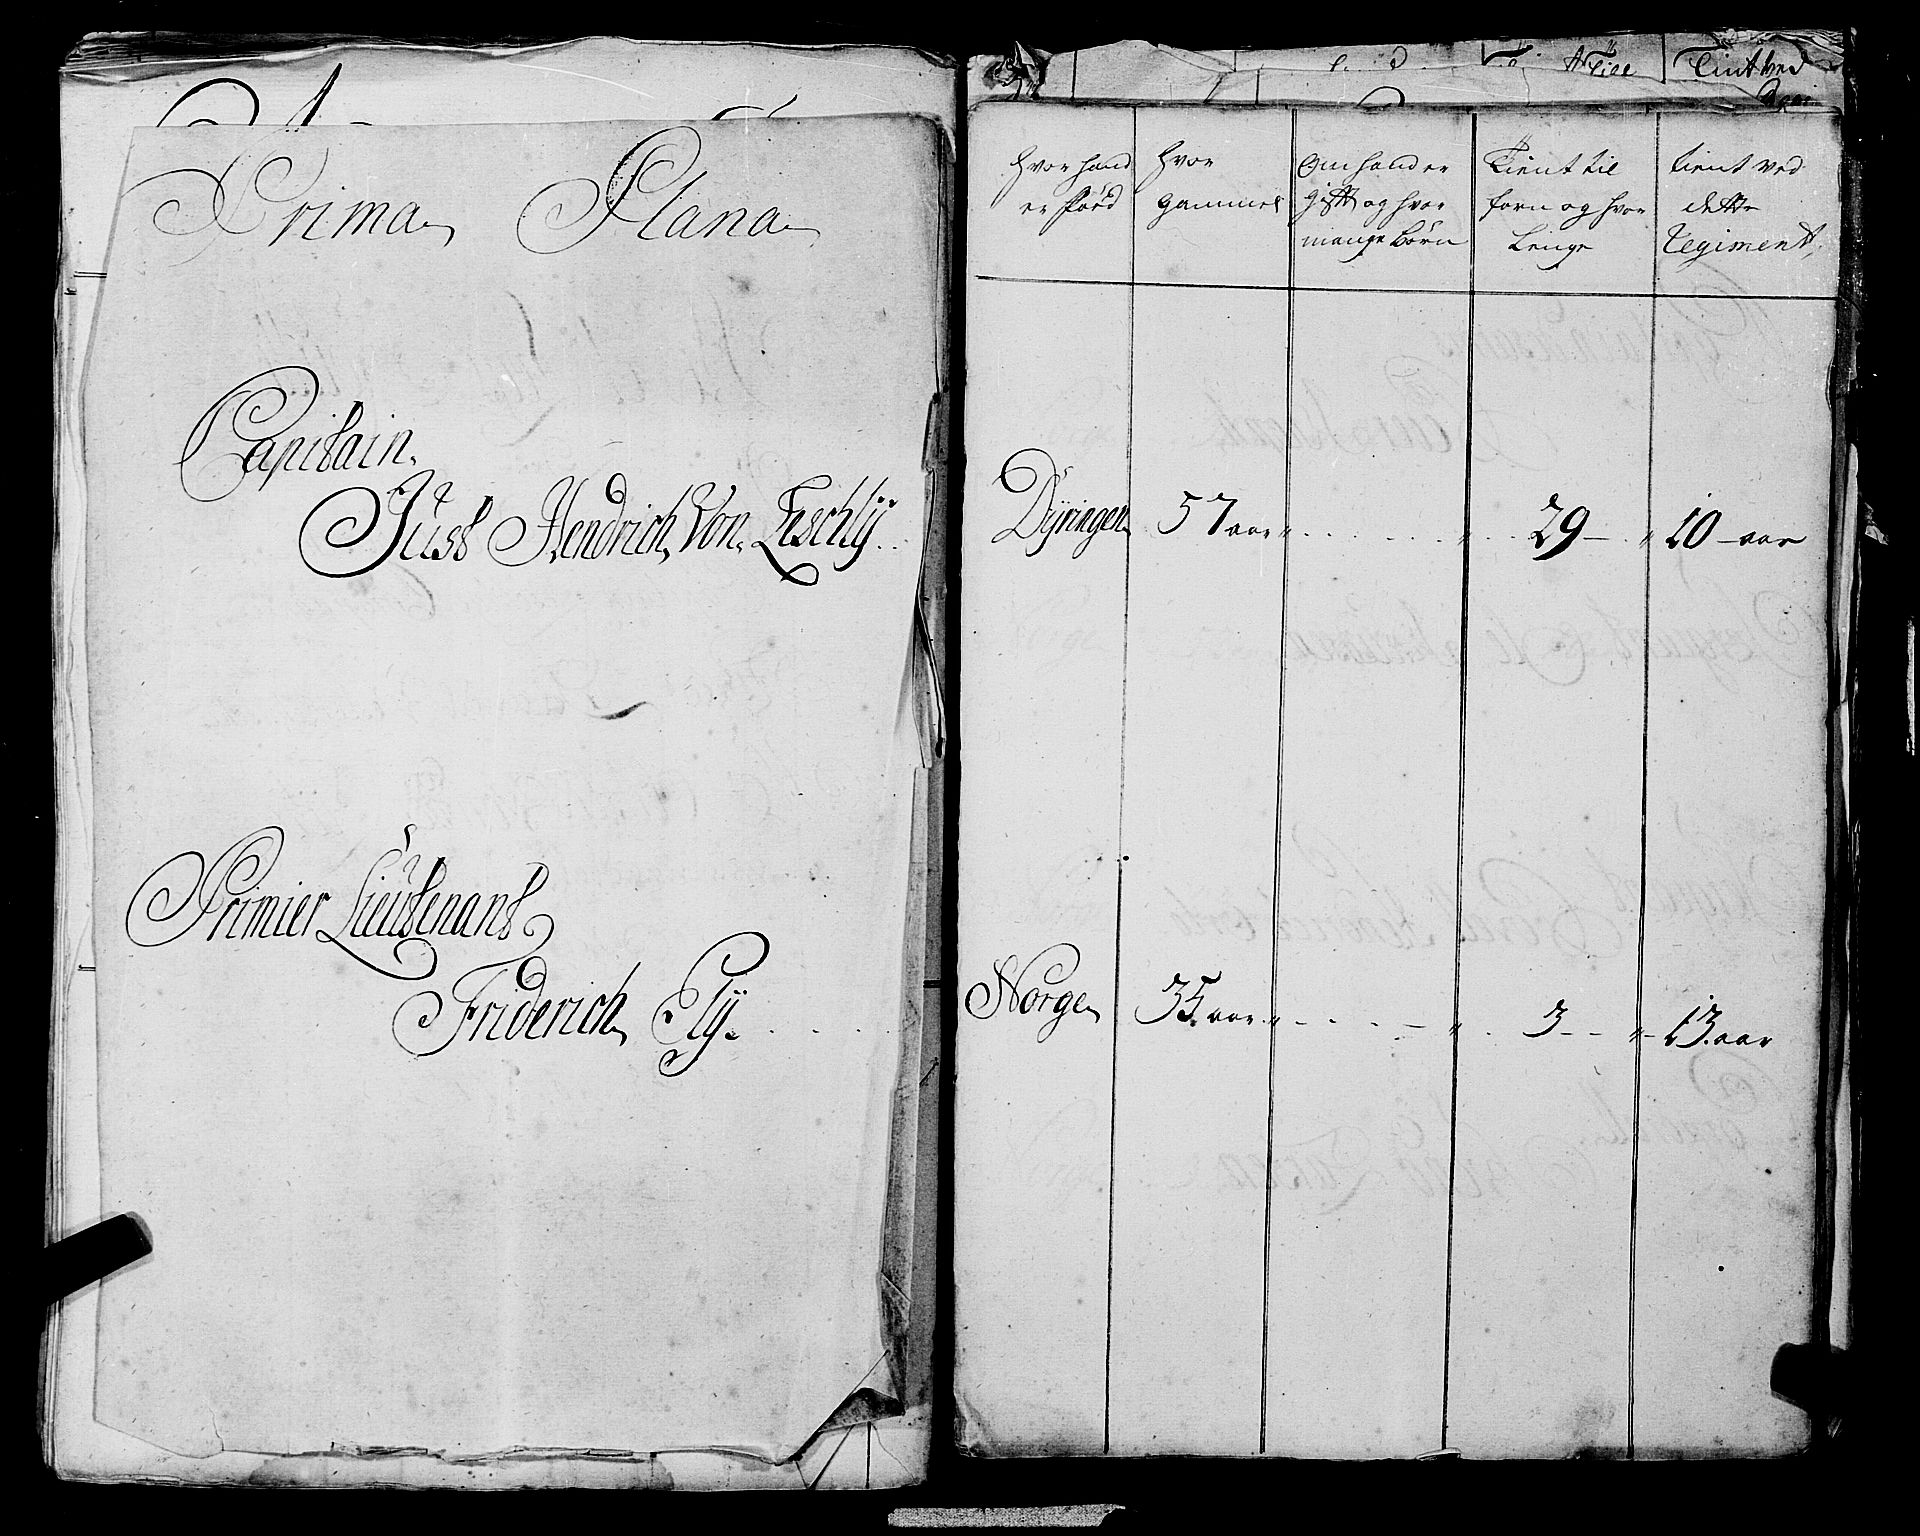 Prima Plana
Capitain.
Just Hendrich Von Leschly
Primier Lieutenant
Friderich Ely.
Tient ved
hvor hand er Føed
hvor gammel
Om hand er gift og hvor mange børn
Tient til forn og hvor Lenge
tient ved dette Regiment,
Dÿringen 57 aar " " 29 " 10 aar
Norge 35. aar " " 3 " 13. aar